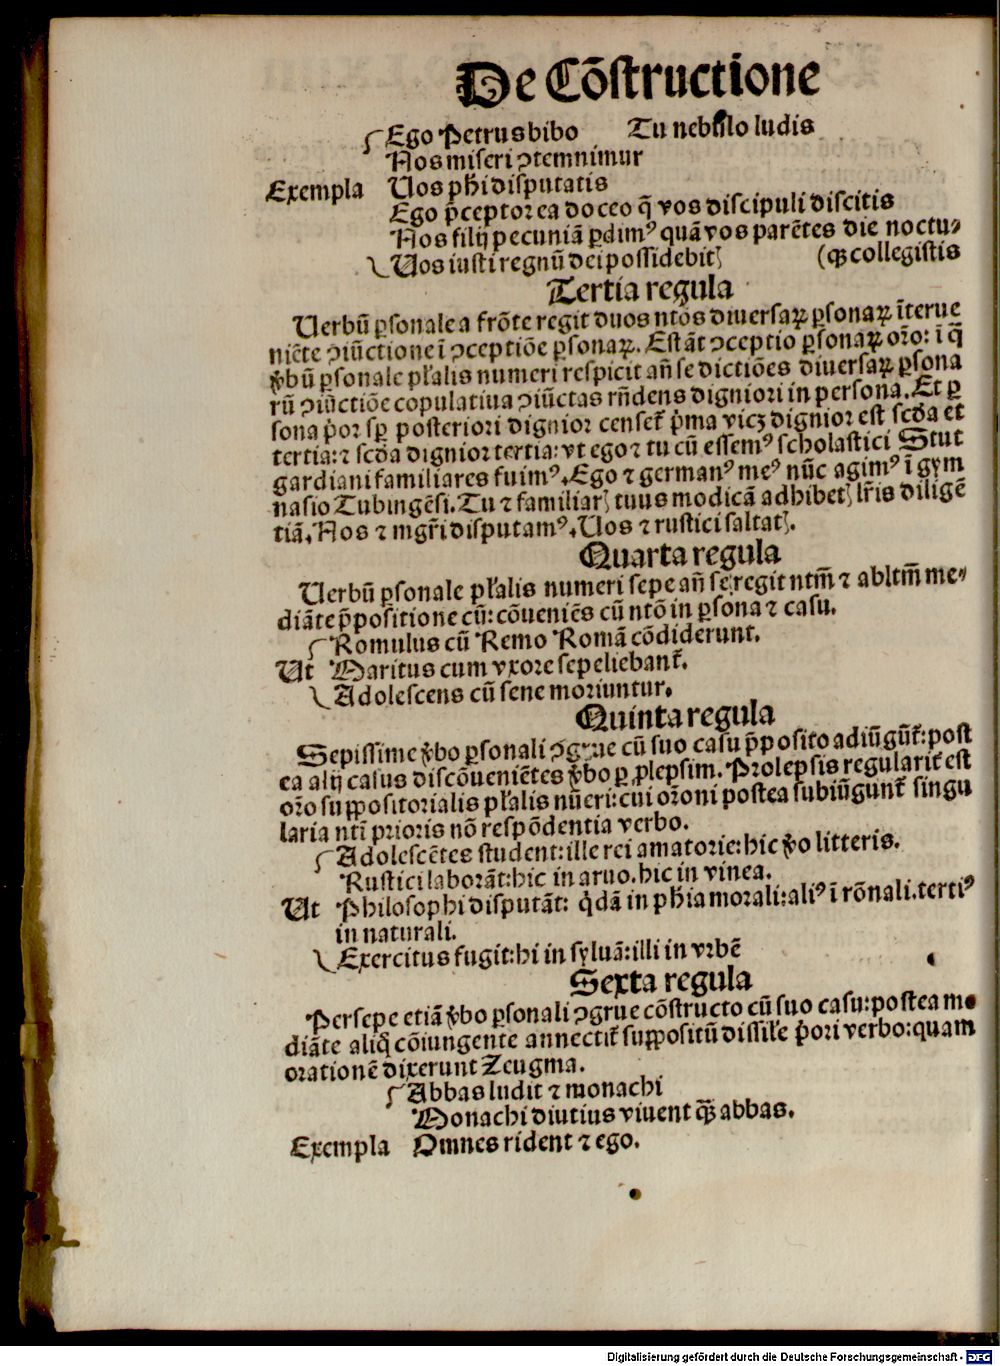 De Cõstructione
Ego Petrus bibo Tu nebulo ludis
Nos miseri ꝯtemnimur
Exempla Vos phi disputatis
Ego p̄ceptor ea doceo q̄ vos discipuli discitis
Nos filij pecuniã ꝑdimꝰ quã vos parẽtes die noctu⸗
Vos iusti regnũ dei possidebitꝭ (qꝫ collegistis
Tertia regula
Verbũ ꝑsonale a frõte regit duos ntõs diuersaꝝ ꝑsonaꝝ ĩterue
niẽte ꝯiũctione ĩ ꝯceptiõe ꝑsonaꝝ. Est ãt ꝯceptio ꝑsonaꝝ orõ: ĩ q̄
ṽbũ ꝑsonale pl̃alis numeri respicit añ se dictiões diuersaꝝ ꝑsona
rũ ꝯiũctiõe copulatiua ꝯiũctas rñdens digniori in persona. Et ꝑ
sona p̓or sꝑ posteriori dignior censet᷑ p̓ma vicꝫ dignior est scđa et
tertia: ⁊ scđa dignior tertia: vt ego ⁊ tu cũ essemꝰ scholastici Stut
gardiani familiares fuimꝰ. Ego ⁊ germanꝰ meꝰ nũc agimꝰ ĩ gym
nasio Tubingẽsi. Tu ⁊ familiarꝭ tuus modicã adhibetꝭ lr̃is diligẽ
tiã. Nos ⁊ mgr̃i disputamꝰ. Vos ⁊ rustici saltatꝭ.
Quarta regula
Verbũ ꝑsonale pl̃alis numeri sepe añ se regit ntm̃ ⁊ abltm̃ me⸗
diãte p̄positione cũ: cõueniẽs cũ ntõ in ꝑsona ⁊ casu.
Romulus cũ Remo Romã cõdiderunt.
Ut Maritus cum vxore sepeliebant᷑.
Adolescens cũ sene moriuntur.
Quinta regula
Sepissime ṽbo ꝑsonali ꝯgrue cũ suo casu p̄posito adiũgũt᷑: post
ea alij casus discõueniẽtes ṽbo ꝑ ꝓlepsim. Prolepsis regularit᷑ est
orõ suppositorialis pl̃alis nũeri: cui orõni postea subiũgunt᷑ singu
laria nti prioris nõ respõdentia verbo.
Adolescẽtes student: ille rei amatorie: hic ṽo litteris.
Rustici laborãt: hic in aruo. hic in vinea.
Ut Philosophi disputãt: q̓dã in phia morali: aliꝰ ĩ rõnali. tertiꝰ
in naturali.
Exercitus fugit: hi in syluã: illi in vrbẽ
Sexta regula
Persepe etiã ṽbo ꝑsonali ꝯgrue cõstructo cũ suo casu: postea me
diãte aliq̓ cõiungente annectit᷑ suppositũ dissil̃e p̓ori verbo: quam
orationẽ dixerunt Zeugma.
Abbas ludit ⁊ monachi
Monachi diutius viuent qꝫ̃ abbas.
Exempla Omnes rident ⁊ ego.
Digitalisierung gefördert durch die Deutsche Forschungsgemeinschaft - DFG